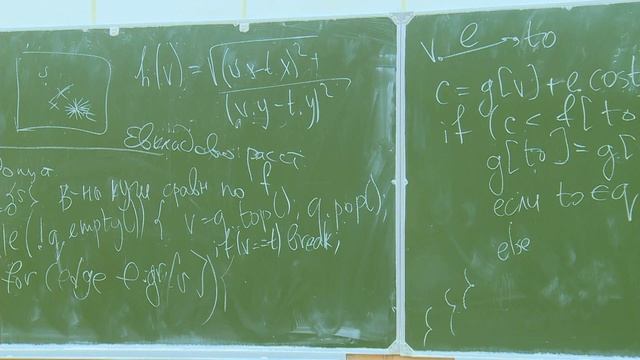 h(v) = √(v.x-t.x)² +
(v.y-t.y)²
Евклидово расст.
в-на куче сравн по f
(!q.empty()) { v=q.top(); q.pop();
if(v==t) break;
for (edge e: gr[v])
v e → to
c = g[v] + e.cost
if (c < g[to
g[to] = g[
если to ∈ q
else
} } }